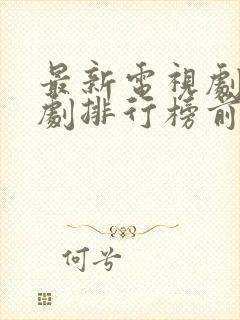 最新電視劇
劇排行榜前
何兮